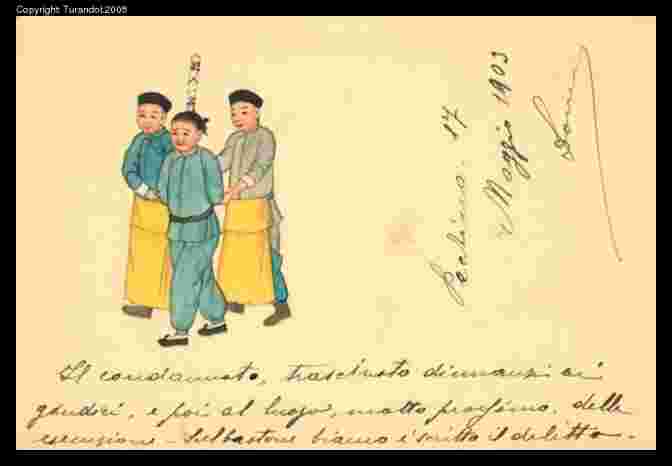 Copyright Turandot,2005
Pechino. 17
Maggio 1903
Il condannato, trascinato dinnanzi ai
giudici, e poi al luogo, molto prossimo, della
esecuzione - Sul bastone bianco è scritto il delitto -